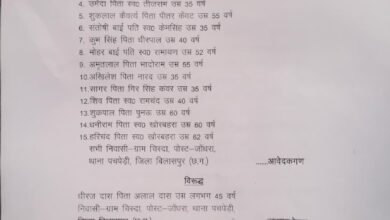 4. उमेदा पिता स्व0 तीजराम उम्र 35 वर्ष
5. शुकलाल कैवर्त्य पिता पीतर केंवट उम्र 55 वर्ष
6. संतोषी बाई पति स्व0 केमसिंह उम्र 35 वर्ष
7. कुम सिंह पिता धीरपाल उम्र 40 वर्ष
8. मोहर बाई पति स्व0 रामायण उम्र 52 वर्ष
9. अमृतलाल पिता भादोराम उम्र 55 वर्ष
10.अखिलेश पिता नारद उम्र 35 वर्ष
11.सागर पिता गिर सिंह कंवर उम्र 35 वर्ष
12.शिव पिता स्व0 रामचंद उम्र 40 वर्ष
13.शुकपाल पिता पुनऊ उम्र 60 वर्ष
14.धनीराम पिता स्व0 खोरबहरा उम्र 60 वर्ष
15.हरिचंद पिता स्व0 खोरबहरा उम्र 62 वर्ष
सभी निवासी-ग्राम चिस्दा, पोस्ट-जोंधरा,
थाना पचपेड़ी, जिला बिलासपुर (छ.ग.) ......आवेदकगण
विरूद्ध
धीरज दास पिता अलाल दास उम्र लगभग 45 वर्ष
निवासी-ग्राम चिस्दा, पोस्ट-जोंधरा, थाना पचपेड़ी,